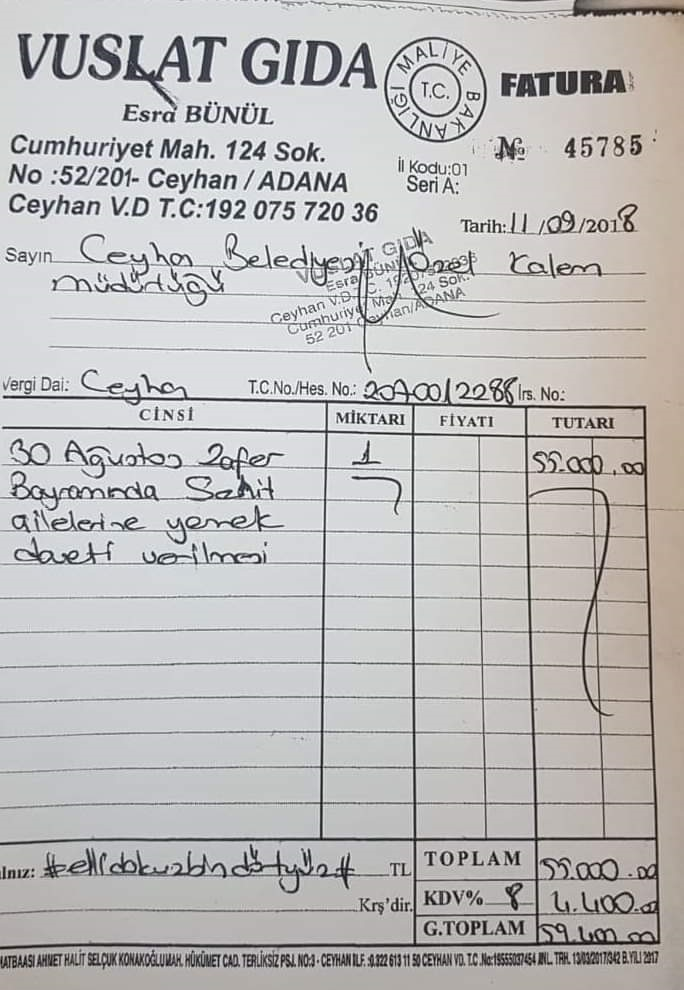 VUSLAT GIDA
Esra BÜNÜL
Cumhuriyet Mah. 124 Sok.
No :52/201- Ceyhan / ADANA
Ceyhan V.D T.C:192 075 720 36
MALİYE BAKANLIĞI
T.C.
FATURA
İl Kodu:01
Seri A:
№ 45785
Tarih: 11/09/2018
Sayın Ceyhan Belediyesi Özel Kalem
Müdürlüğü
VUSLAT GIDA
Esra BÜNÜL
Ceyhan V.D T.C.
Cumhuriyet Mah. 124 Sok.
52 201 Ceyhan/ADANA
Vergi Dai: Ceyhan T.C.No./Hes. No.: 2070012288 İrs. No:
CİNSİ MİKTARI FİYATI TUTARI
30 Ağustos Zafer 1 55.000,00
Bayramında Şehit
ailelerine yemek
daveti verilmesi
lnız: #ellidokuzbindörtyüz# TL
Krş'dir.
TOPLAM 55.000.00
KDV% 8 4.400.00
G.TOPLAM 59.400.00
MATBAASI AHMET HALİT SELÇUK KONAKOĞLUMAH. HÜKÜMET CAD. TERLİKSİZ PSJ. NO:3 - CEYHAN TLF. :0.322 613 11 50 CEYHAN VD. T.C .No:19555037454 ANL. TRH. 13/03/2017/342 B.YILI 2017